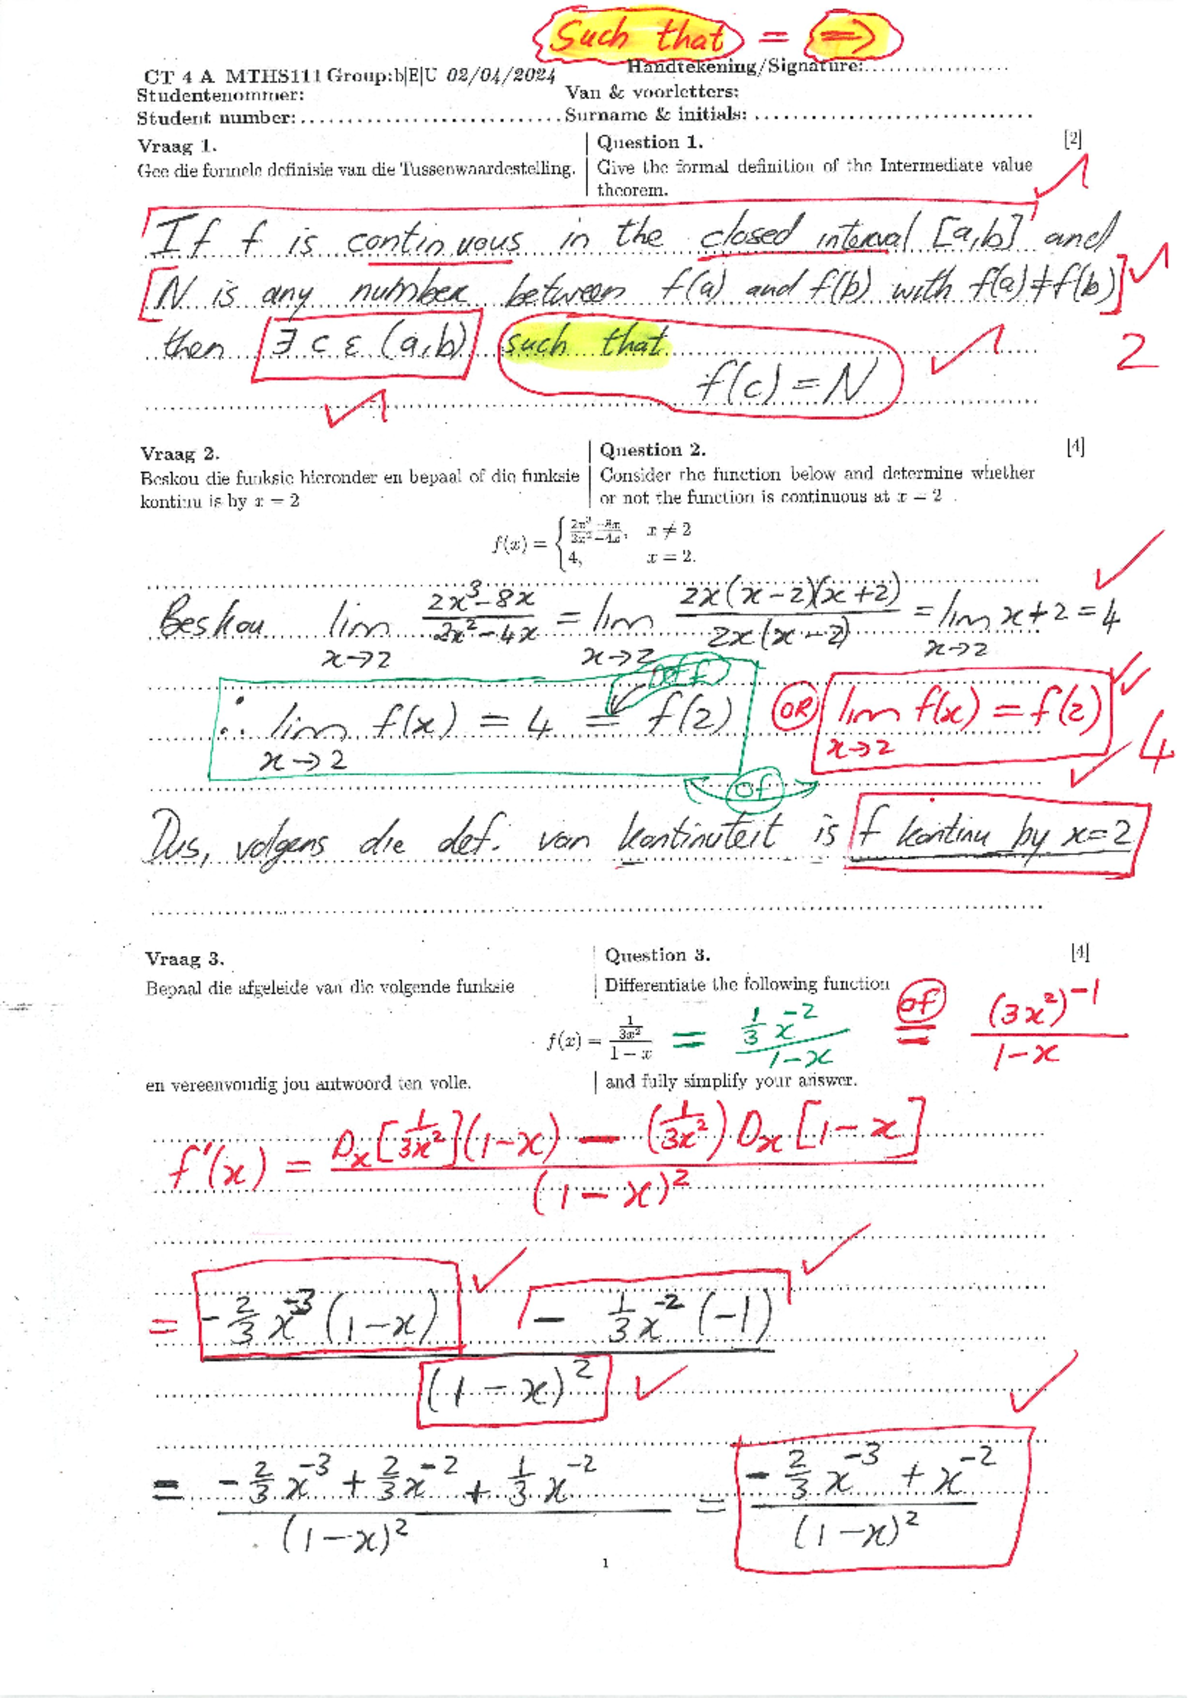 Such that = ⇒
CT 4 A MTHS111 Group:b|E|U 02/04/2024
Handtekening/Signature:..................
Studentenommer:
Van & voorletters:
Student number:.............................Surname & initials:...............................
Vraag 1.
Question 1. [2]
Gee die formele definisie van die Tussenwaardestelling.
Give the formal definition of the Intermediate value
theorem.
If f is continuous in the closed interval [a,b] and
N is any number between f(a) and f(b) with f(a)≠f(b)
then ∃ c ε (a,b) such that
2
f(c) = N
Vraag 2.
Question 2. [4]
Beskou die funksie hieronder en bepaal of die funksie
kontinu is by x = 2
Consider the function below and determine whether
or not the function is continuous at x = 2 .
f(x) = { (2x³−8x)/(2x²−4x), x ≠ 2
4, x = 2.
Beskou lim x→2 (2x³−8x)/(2x²−4x) = lim x→2 (2x(x−2)(x+2))/(2x(x−2)) = lim x→2 x+2 = 4
def
∴ lim x→2 f(x) = 4 = f(2) OR lim x→2 f(x) = f(2)
4
of
Dus, volgens die def. van kontinuteit is f kontinu by x=2
Vraag 3.
Question 3. [4]
Bepaal die afgeleide van die volgende funksie
Differentiate the following function
f(x) = (1/(3x²))/(1 − x) = (1/3 x⁻²)/(1−x) of = ((3x²)⁻¹)/(1−x)
en vereenvoudig jou antwoord ten volle.
and fully simplify your answer.
f'(x) = (Dx[1/(3x²)](1−x) − (1/(3x²)) Dx[1−x])/((1−x)²)
= (−2/3 x⁻³ (1−x) − 1/3 x⁻² (−1))/((1−x)²)
= (−2/3 x⁻³ + 2/3 x⁻² + 1/3 x⁻²)/((1−x)²) = (−2/3 x⁻³ + x⁻²)/((1−x)²)
1